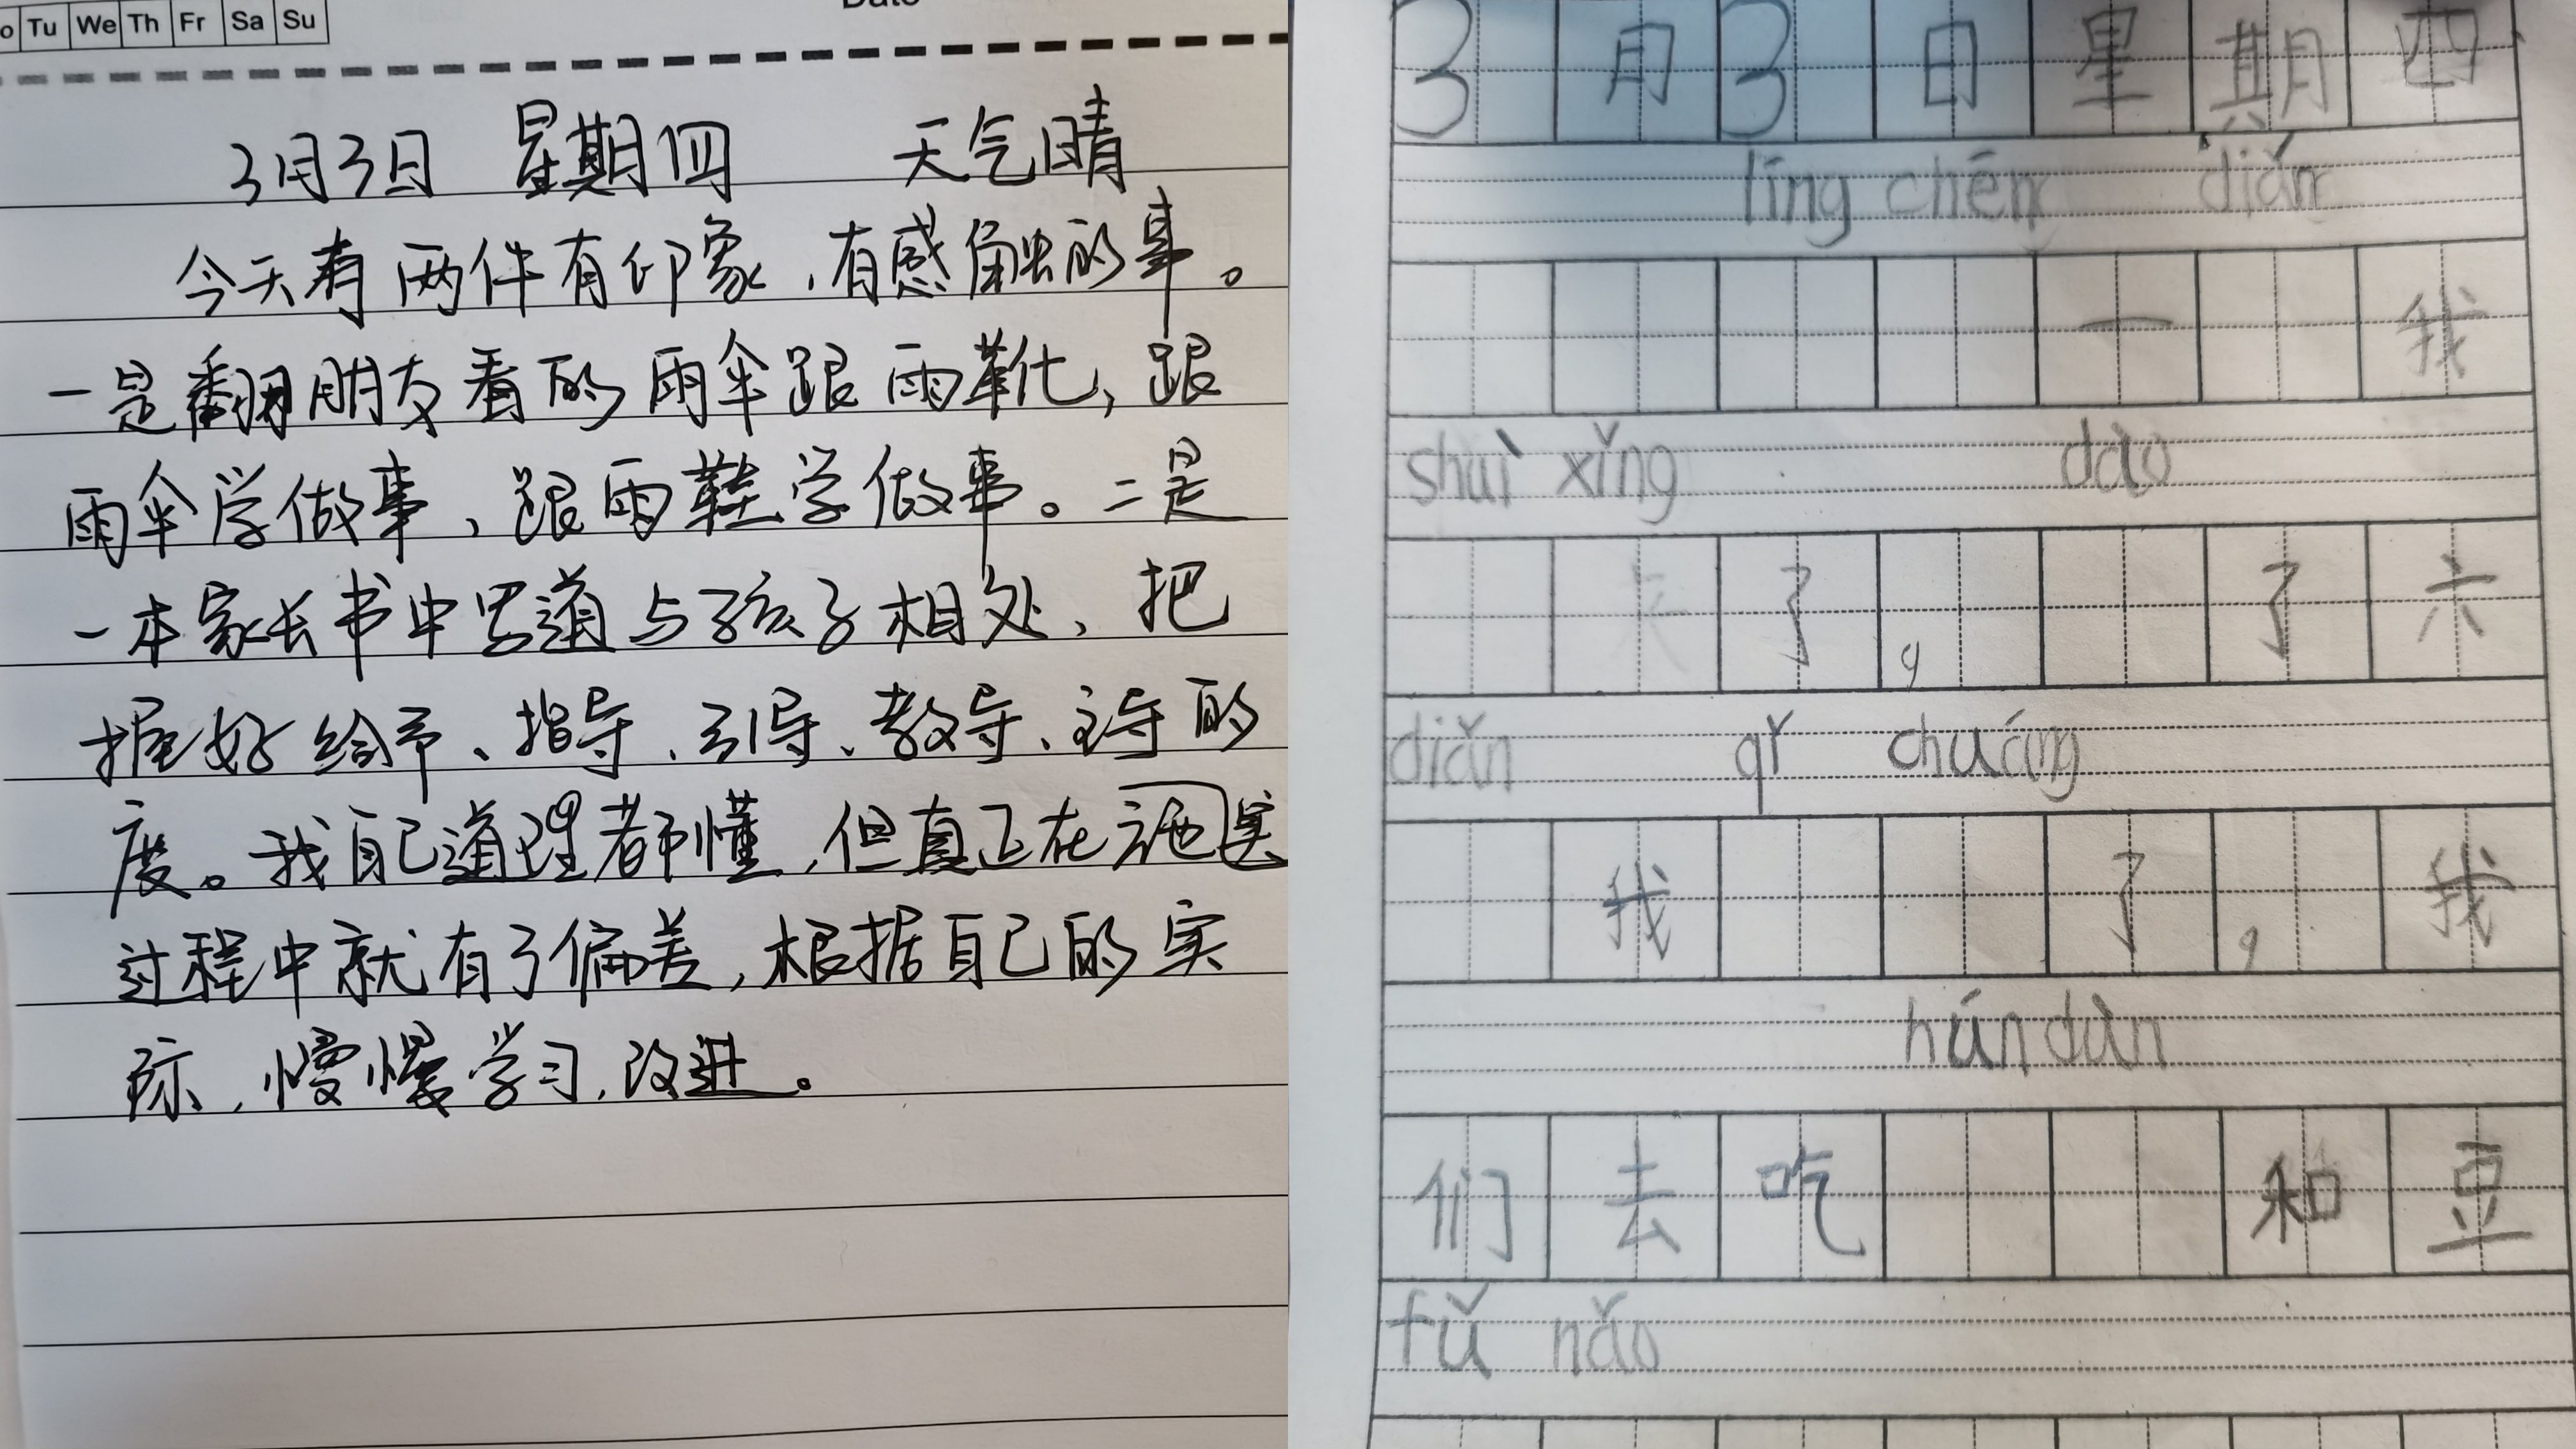 o Tu We Th Fr Sa Su
3月3日 星期四 天气晴
今天有两件有印象,有感触的事。
一是翻朋友看的雨伞跟雨靴,跟
雨伞学做事,跟雨鞋学做事。二是
一本家长书中写道与孩子相处、把
握好给予、指导、引导、教导、主导的
度。我自己道理都懂,但真正在施实
过程中就有了偏差,根据自己的实
际,慢慢学习,改进。
3月3日星期四
líng chén diǎn
一 我
shuì xǐng dào
天了, 了六
diǎn qǐ chuáng
我 了,我
hún dùn
们去吃 和豆
fǔ nǎo